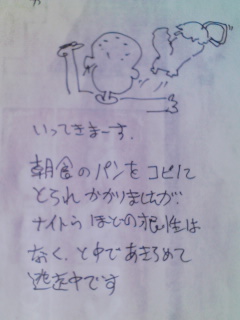 いってきまーす.
朝食のパンをコピに
とられかかりましたが.
ナイトらほどの根性は
なく、と中であきらめて
逃走中です